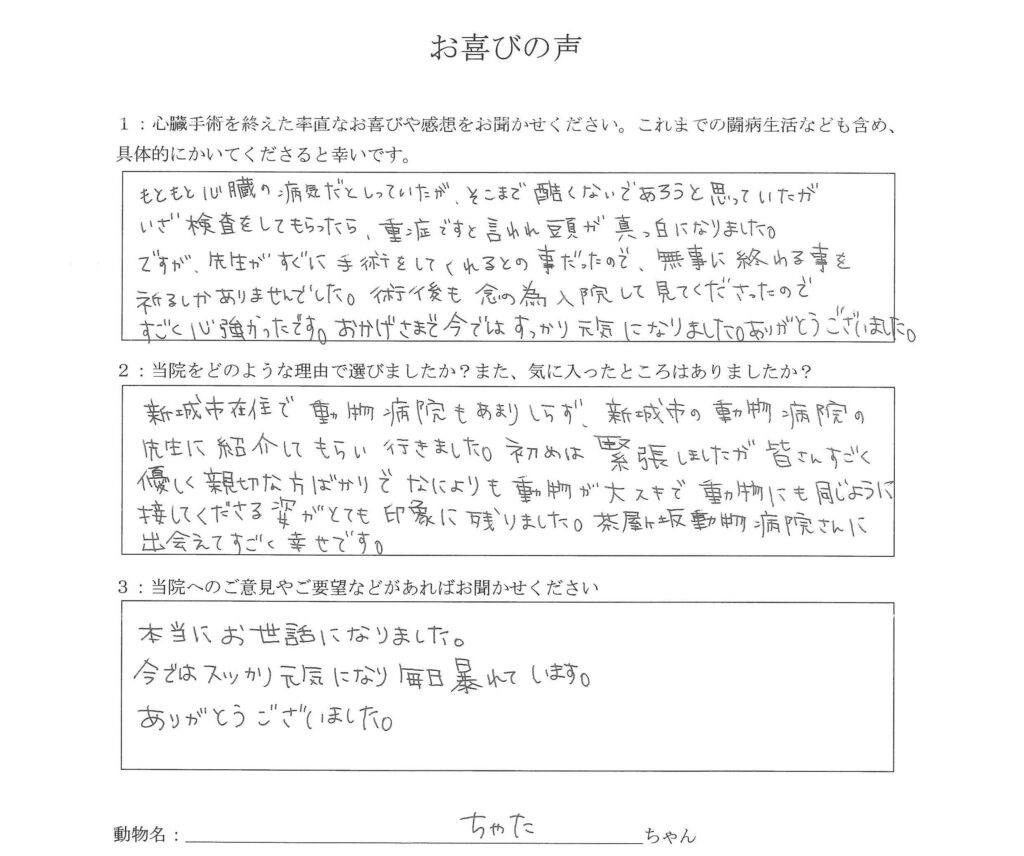 お喜びの声
1：心臓手術を終えた率直なお喜びや感想をお聞かせください。これまでの闘病生活なども含め、
具体的にかいてくださると幸いです。
もともと心臓の病気だとしっていたが、そこまで酷くないであろうと思っていたが
いざ検査をしてもらったら、重症ですと言われ頭が真っ白になりました。
ですが、先生がすぐに手術をしてくれるとの事だったので、無事に終わる事を
祈るしかありませんでした。術後も念の為入院して見てくださったので
すごく心強かったです。おかげさまで今ではすっかり元気になりました。ありがとうございました。
2：当院をどのような理由で選びましたか？また、気に入ったところはありましたか？
新城市在住で動物病院もあまりしらず、新城市の動物病院の
先生に紹介してもらい行きました。初めは緊張しましたが皆さんすごく
優しく親切な方ばかりでなによりも動物が大スキで動物にも同じように
接してくださる姿がとても印象に残りました。茶屋ヶ坂動物病院さんに
出会えてすごく幸せです。
3：当院へのご意見やご要望などがあればお聞かせください
本当にお世話になりました。
今ではスッカリ元気になり毎日暴れています。
ありがとうございました。
動物名：ちゃたちゃん